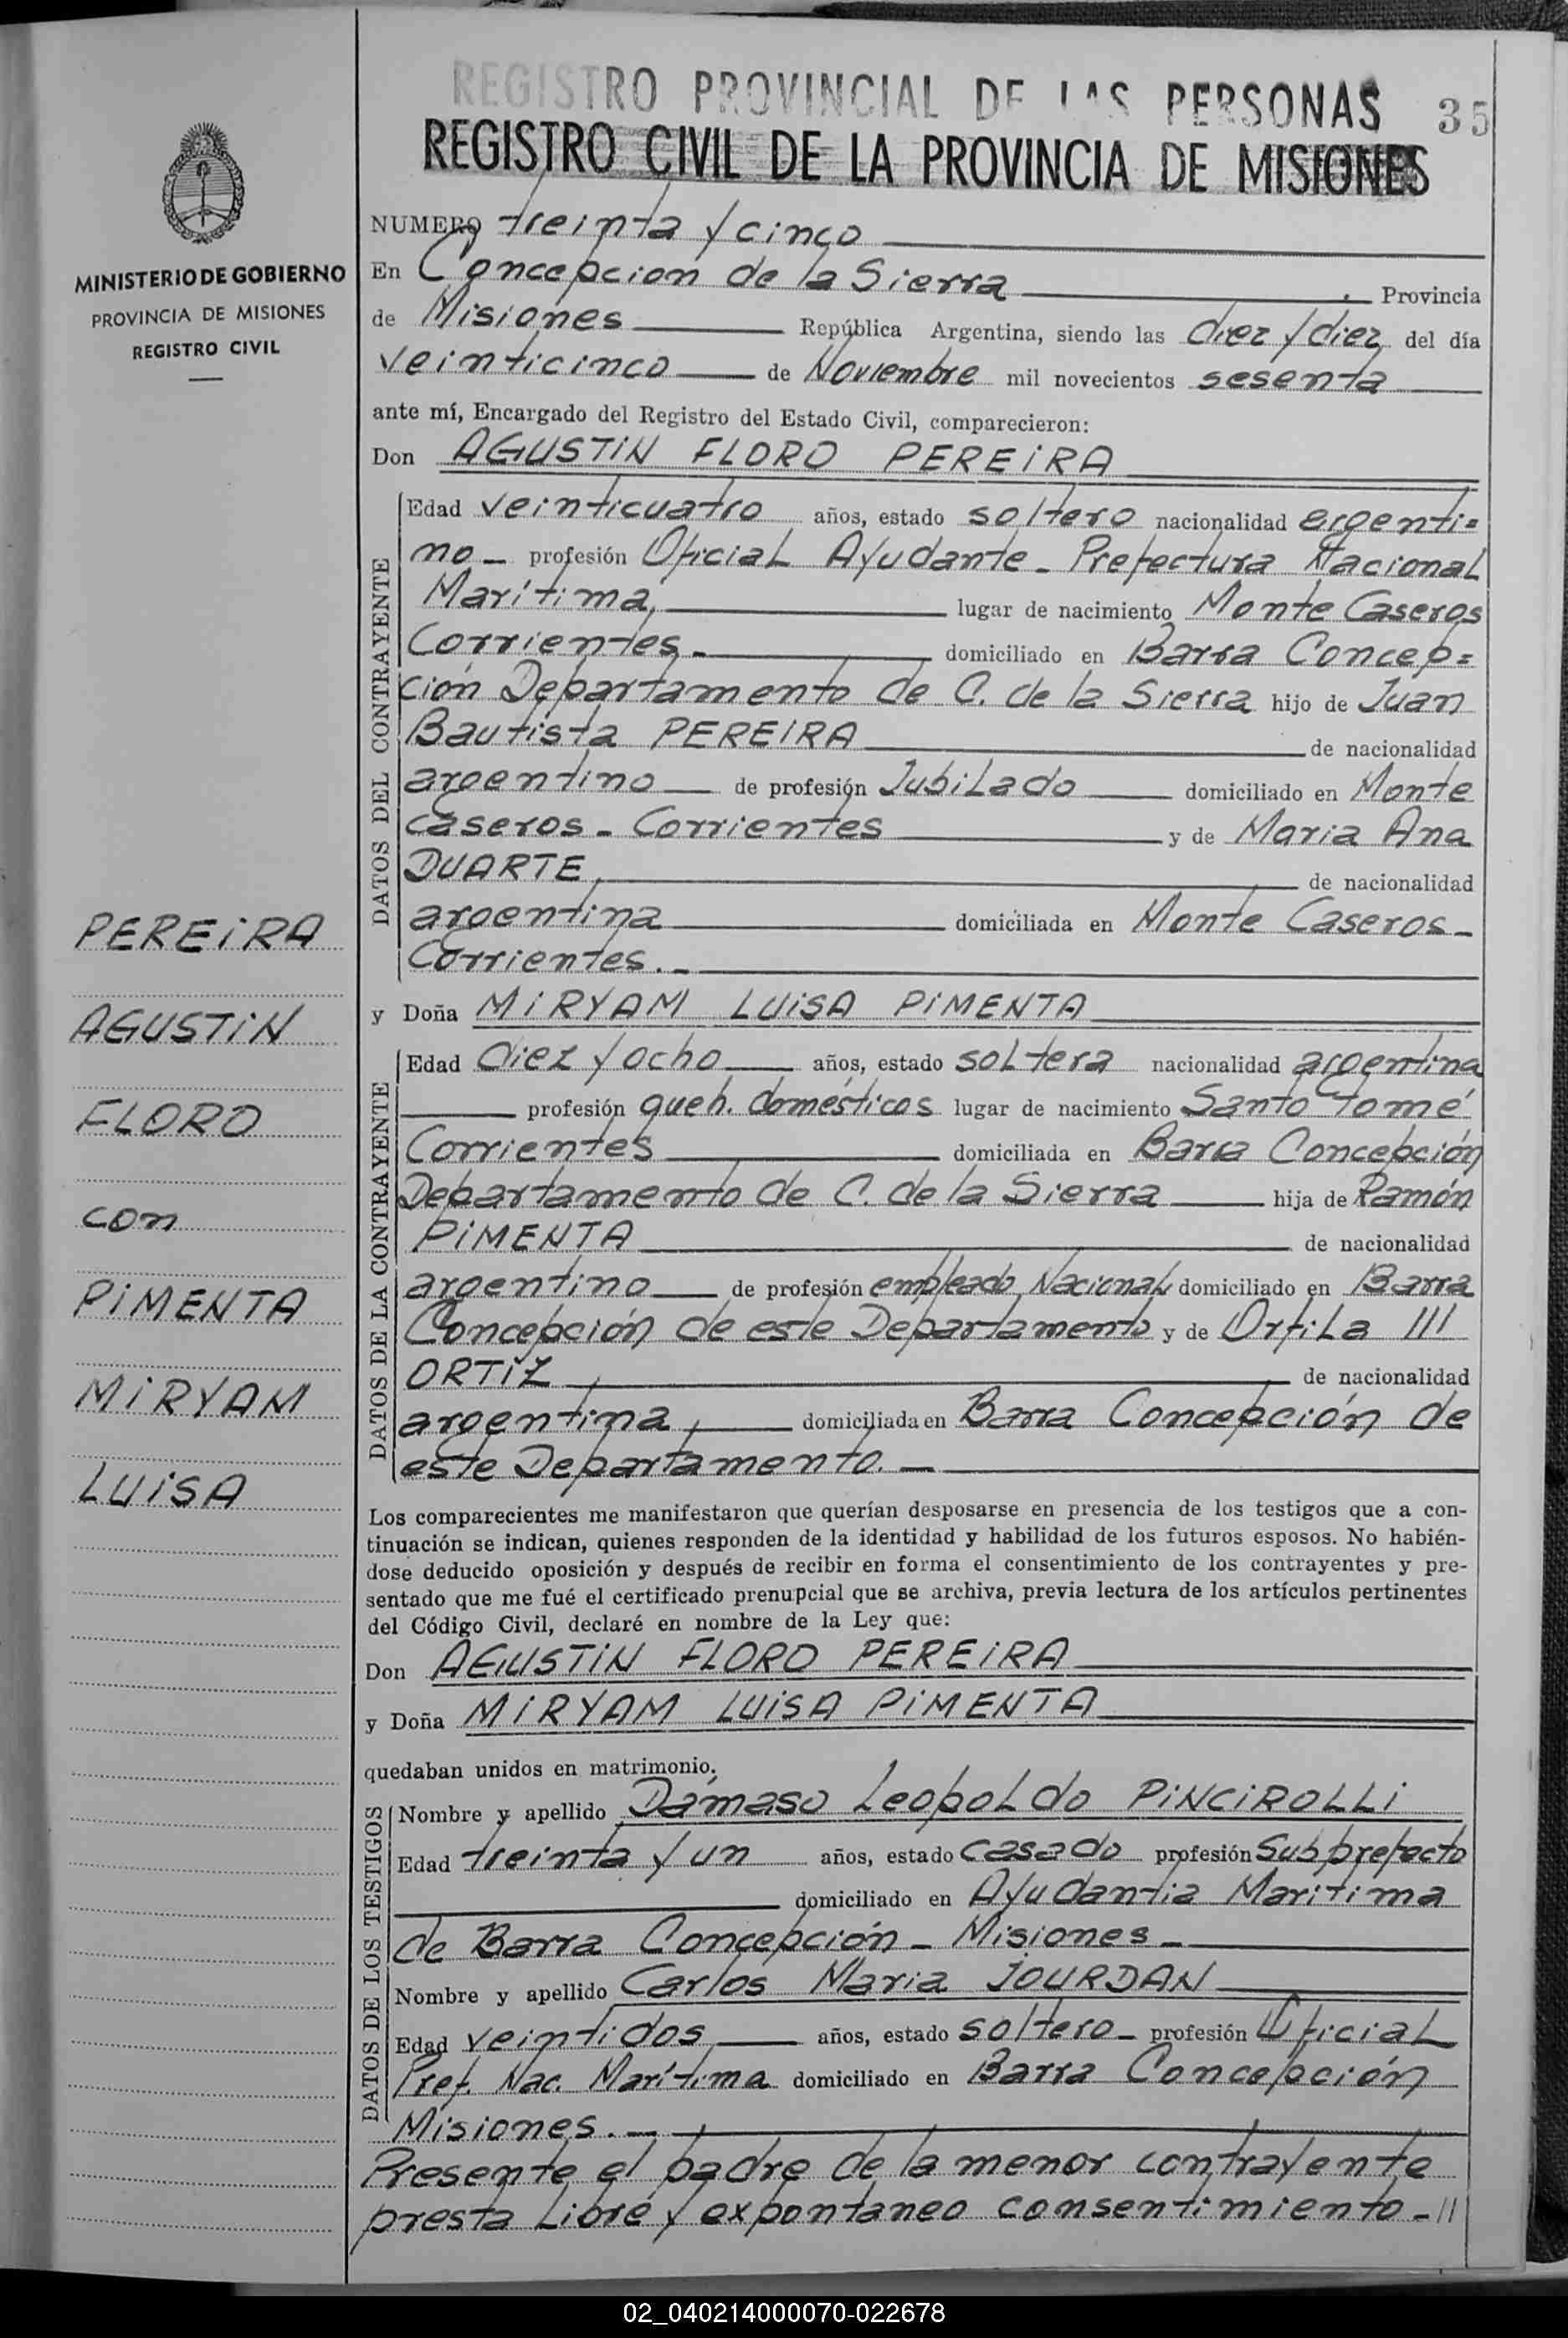 REGISTRO PROVINCIAL DE LAS PERSONAS 35
REGISTRO CIVIL DE LA PROVINCIA DE MISIONES
MINISTERIO DE GOBIERNO
PROVINCIA DE MISIONES
REGISTRO CIVIL
PEREIRA
AGUSTIN
FLORO
con
PIMENTA
MIRYAM
LUISA
NUMERO treinta y cinco
En Concepcion de la Sierra, Provincia
de Misiones República Argentina, siendo las diez y diez del día
veinticinco de Noviembre mil novecientos sesenta
ante mí, Encargado del Registro del Estado Civil, comparecieron:
Don AGUSTIN FLORO PEREIRA
DATOS DEL CONTRAYENTE
Edad veinticuatro años, estado soltero nacionalidad argenti=
no - profesión Oficial Ayudante - Prefectura Nacional
Marítima, lugar de nacimiento Monte Caseros
Corrientes - domiciliado en Barra Concep=
ción Departamento de C. de la Sierra hijo de Juan
Bautista PEREIRA de nacionalidad
argentino de profesión Jubilado domiciliado en Monte
caseros - Corrientes y de Maria Ana
DUARTE, de nacionalidad
argentina domiciliada en Monte Caseros -
Corrientes. -
y Doña MIRYAM LUISA PIMENTA
DATOS DE LA CONTRAYENTE
Edad diez y ocho años, estado soltera nacionalidad argentina
profesión queh. domésticos lugar de nacimiento Santo Tomé
Corrientes domiciliada en Barra Concepción
Departamento de C. de la Sierra hija de Ramón
PIMENTA de nacionalidad
argentino de profesión empleado Nacional domiciliado en Barra
Concepción de este Departamento y de Orfila ///
ORTIZ de nacionalidad
argentina, domiciliada en Barra Concepción de
este Departamento. -
Los comparecientes me manifestaron que querían desposarse en presencia de los testigos que a con-
tinuación se indican, quienes responden de la identidad y habilidad de los futuros esposos. No habién-
dose deducido oposición y después de recibir en forma el consentimiento de los contrayentes y pre-
sentado que me fué el certificado prenupcial que se archiva, previa lectura de los artículos pertinentes
del Código Civil, declaré en nombre de la Ley que:
Don AGUSTIN FLORO PEREIRA
y Doña MIRYAM LUISA PIMENTA
quedaban unidos en matrimonio.
DATOS DE LOS TESTIGOS
Nombre y apellido Dámaso Leopoldo PINCIROLLI
Edad treinta y un años, estado casado profesión Subprefecto
domiciliado en Ayudantia Maritima
de Barra Concepción - Misiones -
Nombre y apellido Carlos Maria JOURDAN
Edad veintidos años, estado soltero - profesión Oficial
Pref. Nac. Marítima domiciliado en Barra Concepción
Misiones. -
Presente el padre de la menor contrayente
presta libre y expontaneo consentimiento - //
02_040214000070-022678